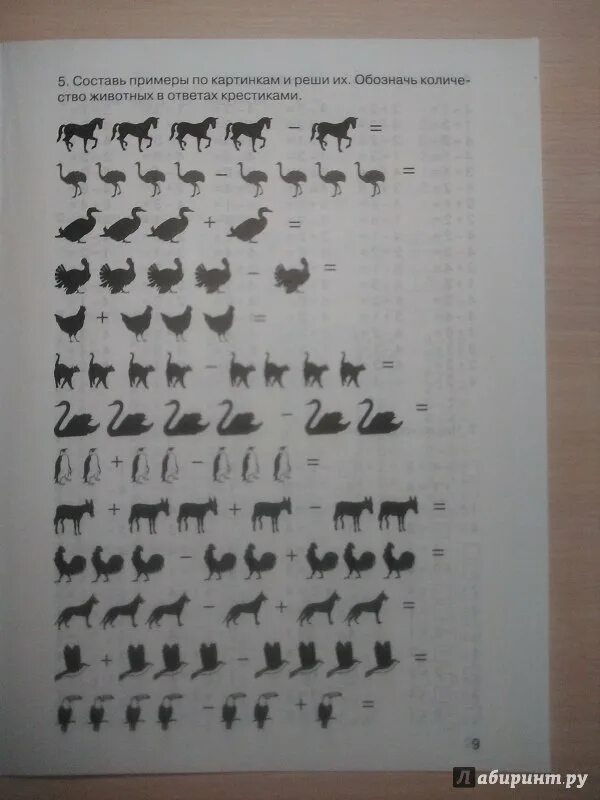 5. Составь примеры по картинкам и реши их. Обозначь количе-
ство животных в ответах крестиками.
− =
− =
+ =
− =
+ =
− =
− =
+ − =
+ + − =
− + =
− + =
+ − =
− + =
9
Лабиринт.ру